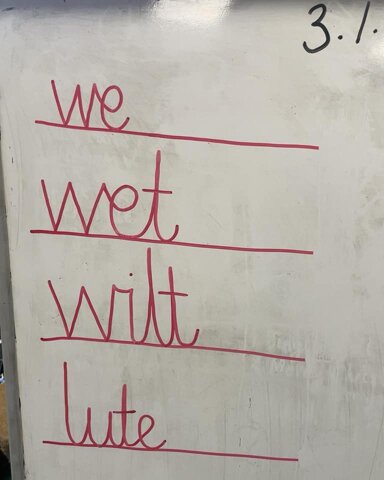 3.1.
we
wet
wilt
lute